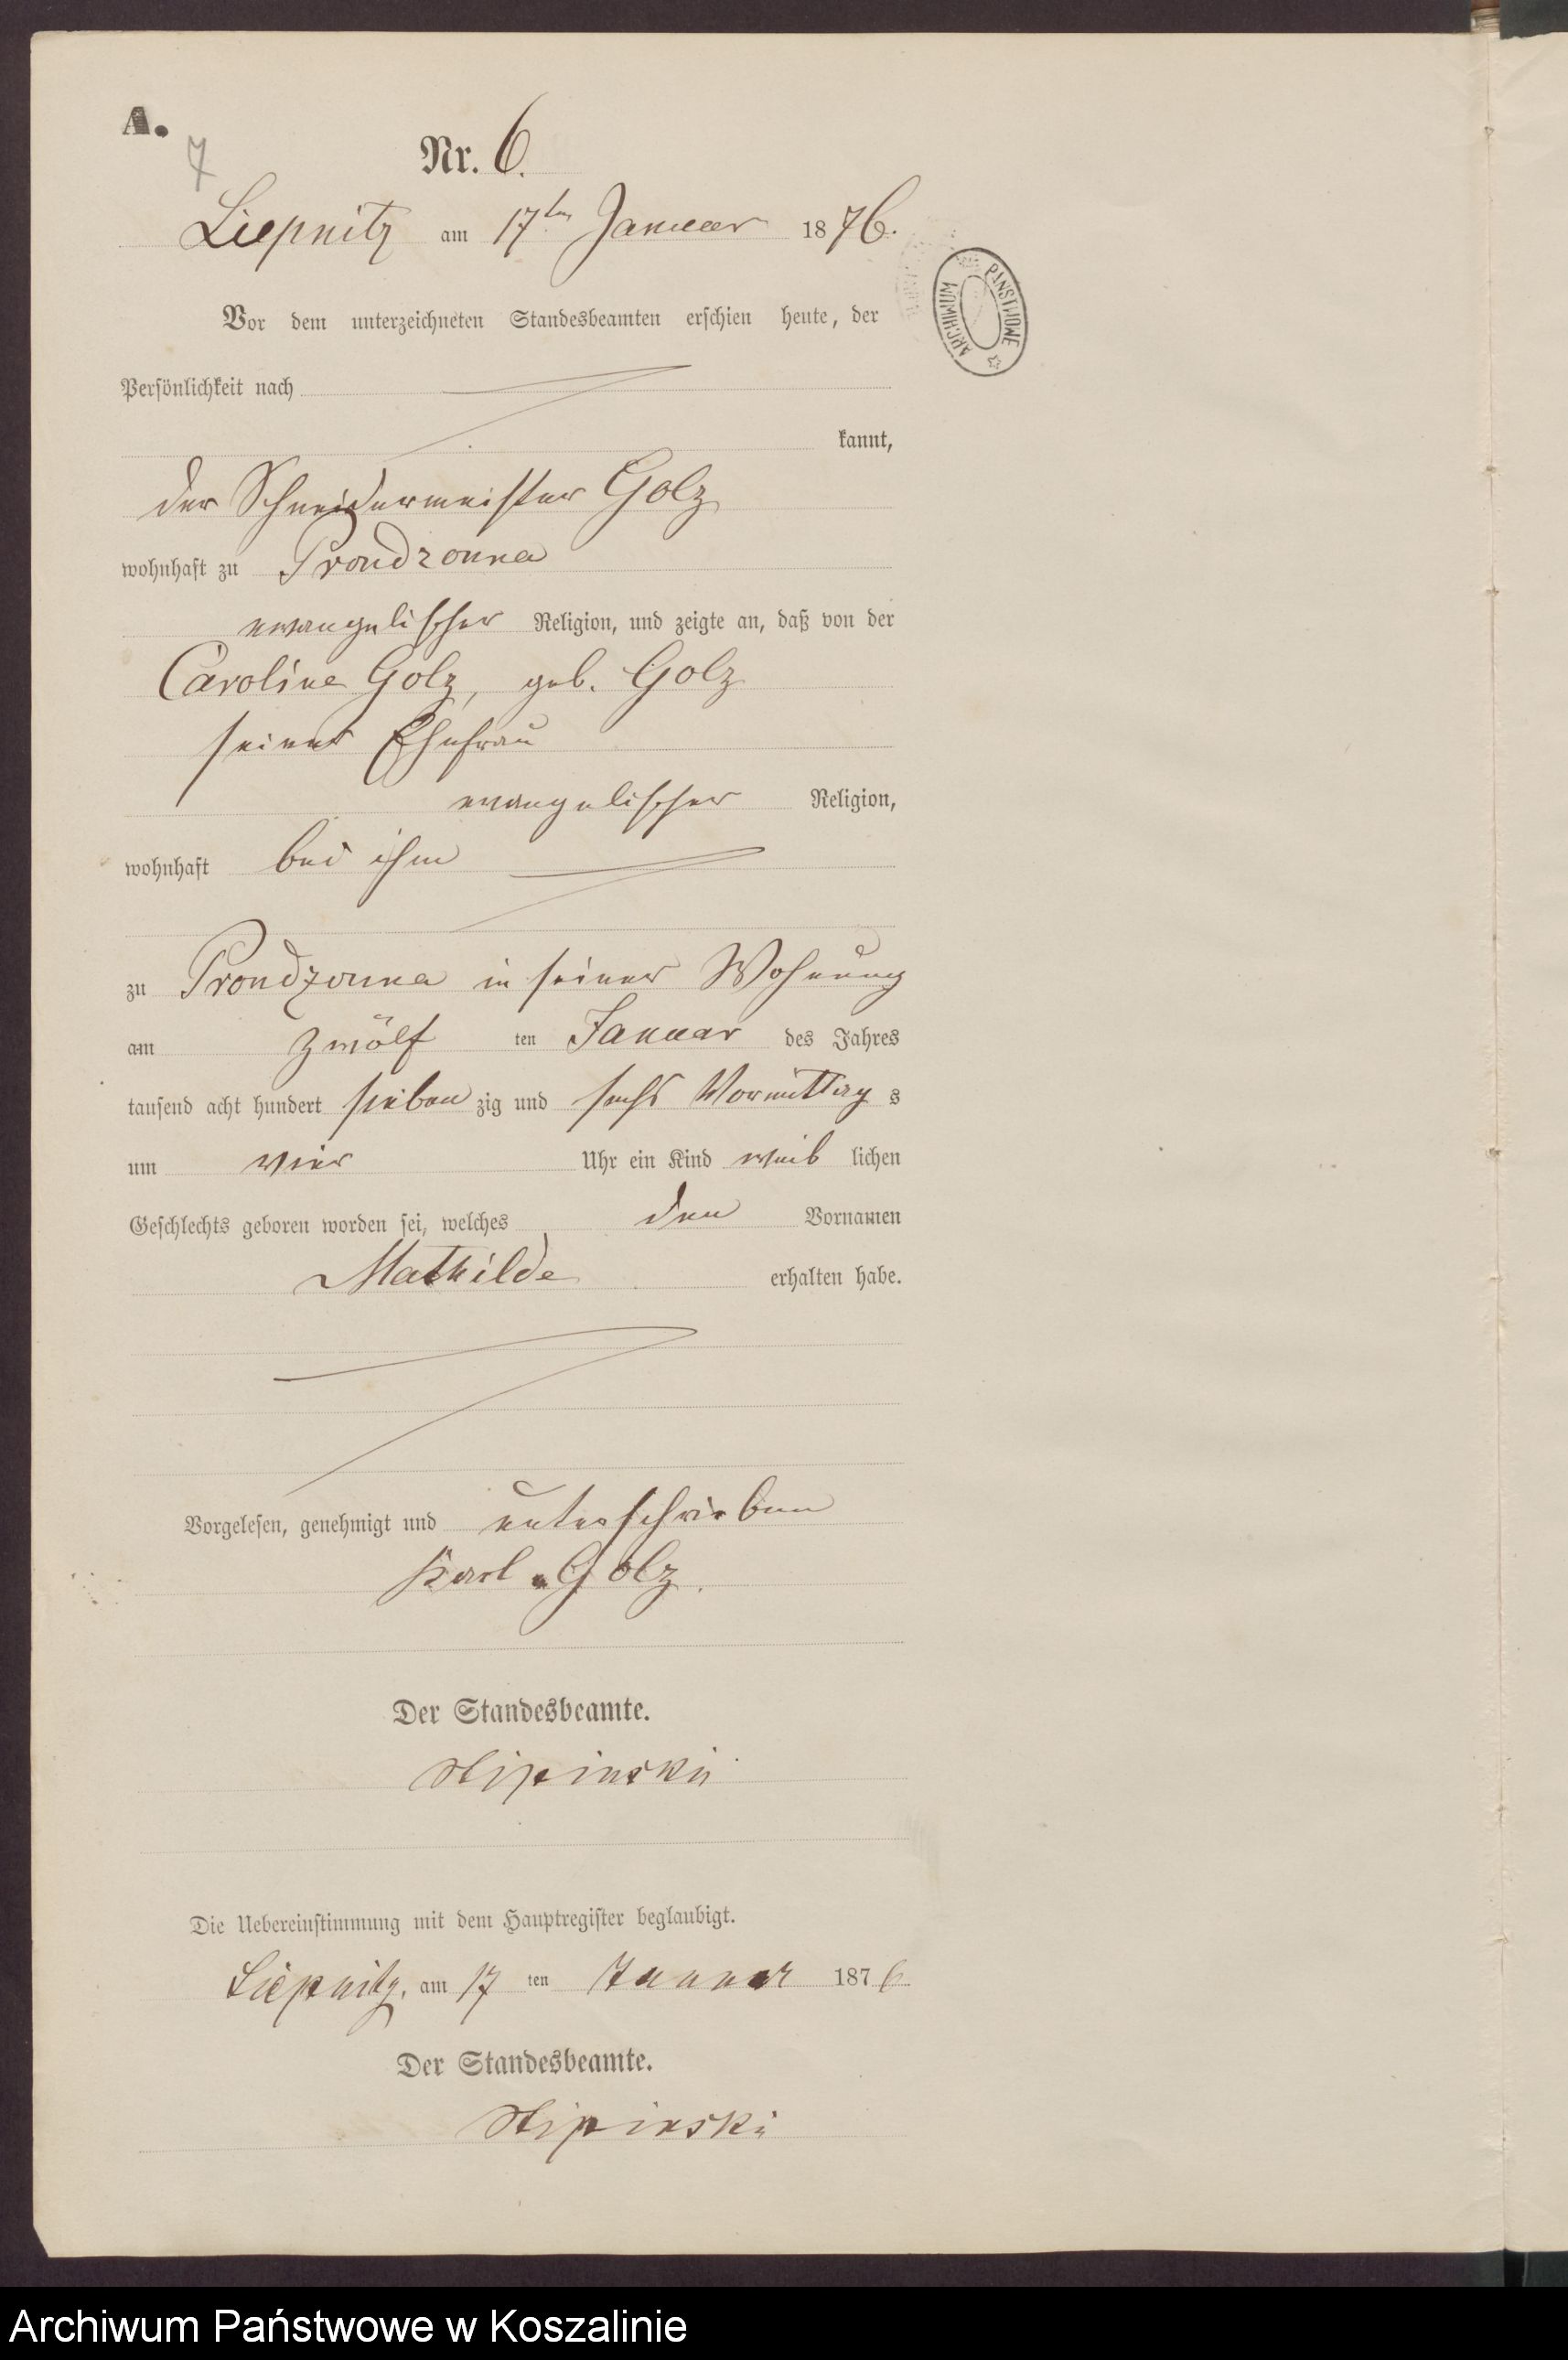 A.
7
Nr. 6.
Liepnitz am 17ten Januar 1876.
Vor dem unterzeichneten Standesbeamten erschien heute, der
Persönlichkeit nach
kannt,
der Schneidermeister Golz
wohnhaft zu Prondzonna
evangelischer Religion, und zeigte an, daß von der
Caroline Golz, geb. Golz
seiner Ehefrau
evangelischer Religion,
wohnhaft bei ihm
zu Prondzonna in seiner Wohnung
am zwölf ten Januar des Jahres
tausend acht hundert sieben zig und sechs Vormittag s
um vier Uhr ein Kind weib lichen
Geschlechts geboren worden sei, welches den Vornamen
Mathilde erhalten habe.
Vorgelesen, genehmigt und unterschrieben
Karl Golz.
Der Standesbeamte.
Die Uebereinstimmung mit dem Hauptregister beglaubigt.
Liepnitz, am 17 ten Januar 1876
Der Standesbeamte.
ARCHIWUM PAŃSTWOWE
Archiwum Państwowe w Koszalinie